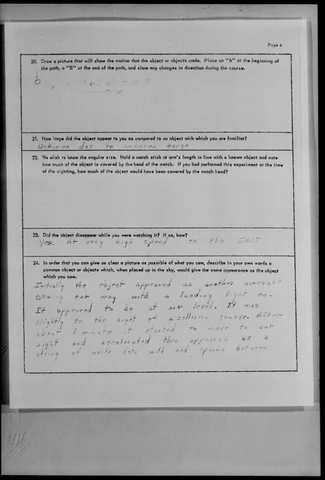 Page 6
20. Draw a picture that will show the motion that the object or objects made. Place an "A" at the beginning of
the path, a "B" at the end of the path, and show any changes in direction during the course.
21. How large did the object appear to you as compared to an object with which you are familiar?
Unknown due to unknown range
22. We wish to know the angular size. Hold a match stick at arm's length in line with a known object and note
how much of the object is covered by the head of the match. If you had performed this experiment at the time
of the sighting, how much of the object would have been covered by the match head?
23. Did the object disappear while you were watching it? If so, how?
Yes. At very high speed to the East
24. In order that you can give as clear a picture as possible of what you saw, describe in your own words a
common object or objects which, when placed up in the sky, would give the same appearance as the object
which you saw.
Initially the object appeared as another aircraft
coming our way with a landing light on.
It appeared to be at our level. It was
slightly to the right of a collision course. After
about 1 minute it started to move to our
right and accelerated then appeared as a
string of white dots with red spaces between.